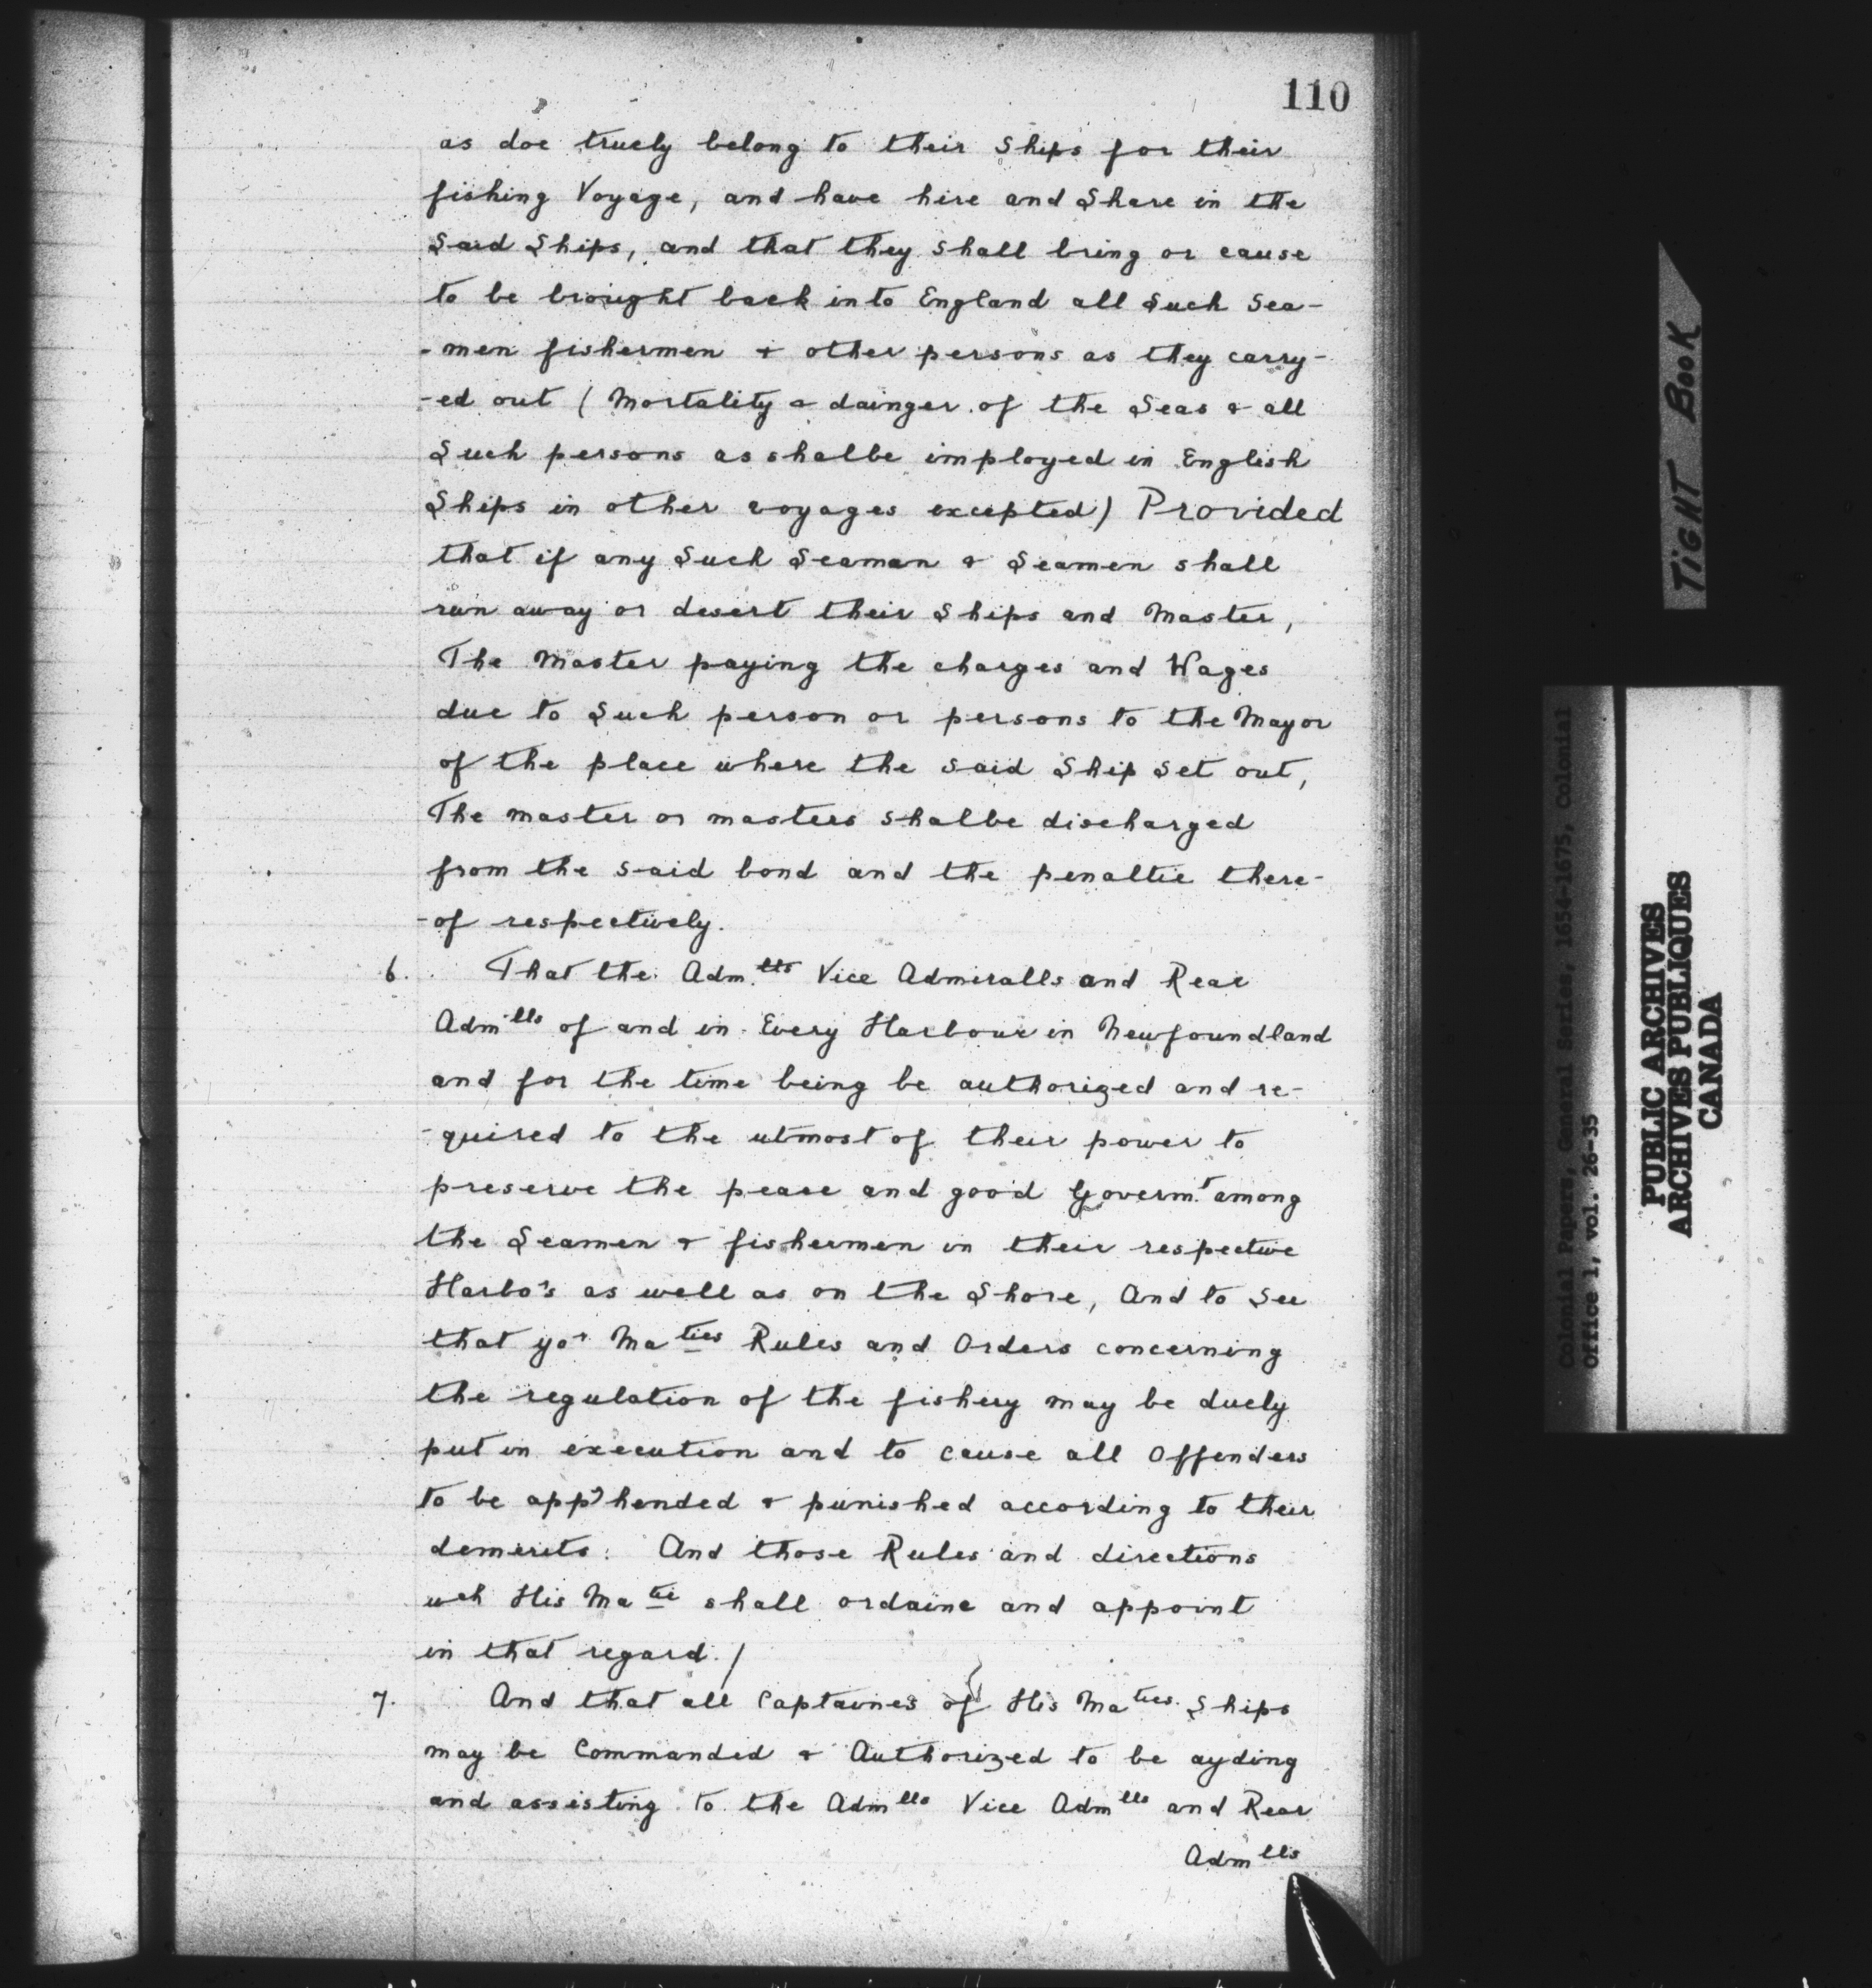 110
as doe truely belong to their Ships for their
fishing Voyage, and have hire and Share in the
Said Ships, and that they shall bring or cause
to be brought back into England all Such Sea-
-men fishermen & other persons as they carry-
-ed out (Mortality & dainger of the Seas & all
Such persons as shalbe imployed in English
Ships in other voyages excepted) Provided
that if any Such Seaman & Seamen shall
run away or desert their Ships and Master,
The Master paying the charges and Wages
due to Such person or persons to the Mayor
of the place where the said Ship Set out,
The master or masters shalbe discharged
from the said bond and the penaltie there-
-of respectively.
6. That the Adm.lls Vice Admiralls and Rear
Adm lls of and in Every Harbour in Newfoundland
and for the time being be authorized and re-
-quired to the utmost of their power to
preserve the peace and good Governm.t among
the Seamen & fishermen in their respective
Harbo's as well as on the Shore, And to See
that yor Ma ties Rules and Orders concerning
the regulation of the fishery may be duely
put in execution and to cause all Offenders
to be app'hended & punished according to their
demerits: And those Rules and directions
wch His Ma tie shall ordaine and appoint
in that regard./
7. And that all Captaines of His Ma ties Ships
may be Commanded & Authorized to be ayding
and assisting to the Adm lls Vice Adm lls and Rear
Adm lls
TIGHT BOOK
Colonial Papers, General Series, 1654-1675, Colonial
Office 1, vol. 26-35
PUBLIC ARCHIVES
ARCHIVES PUBLIQUES
CANADA